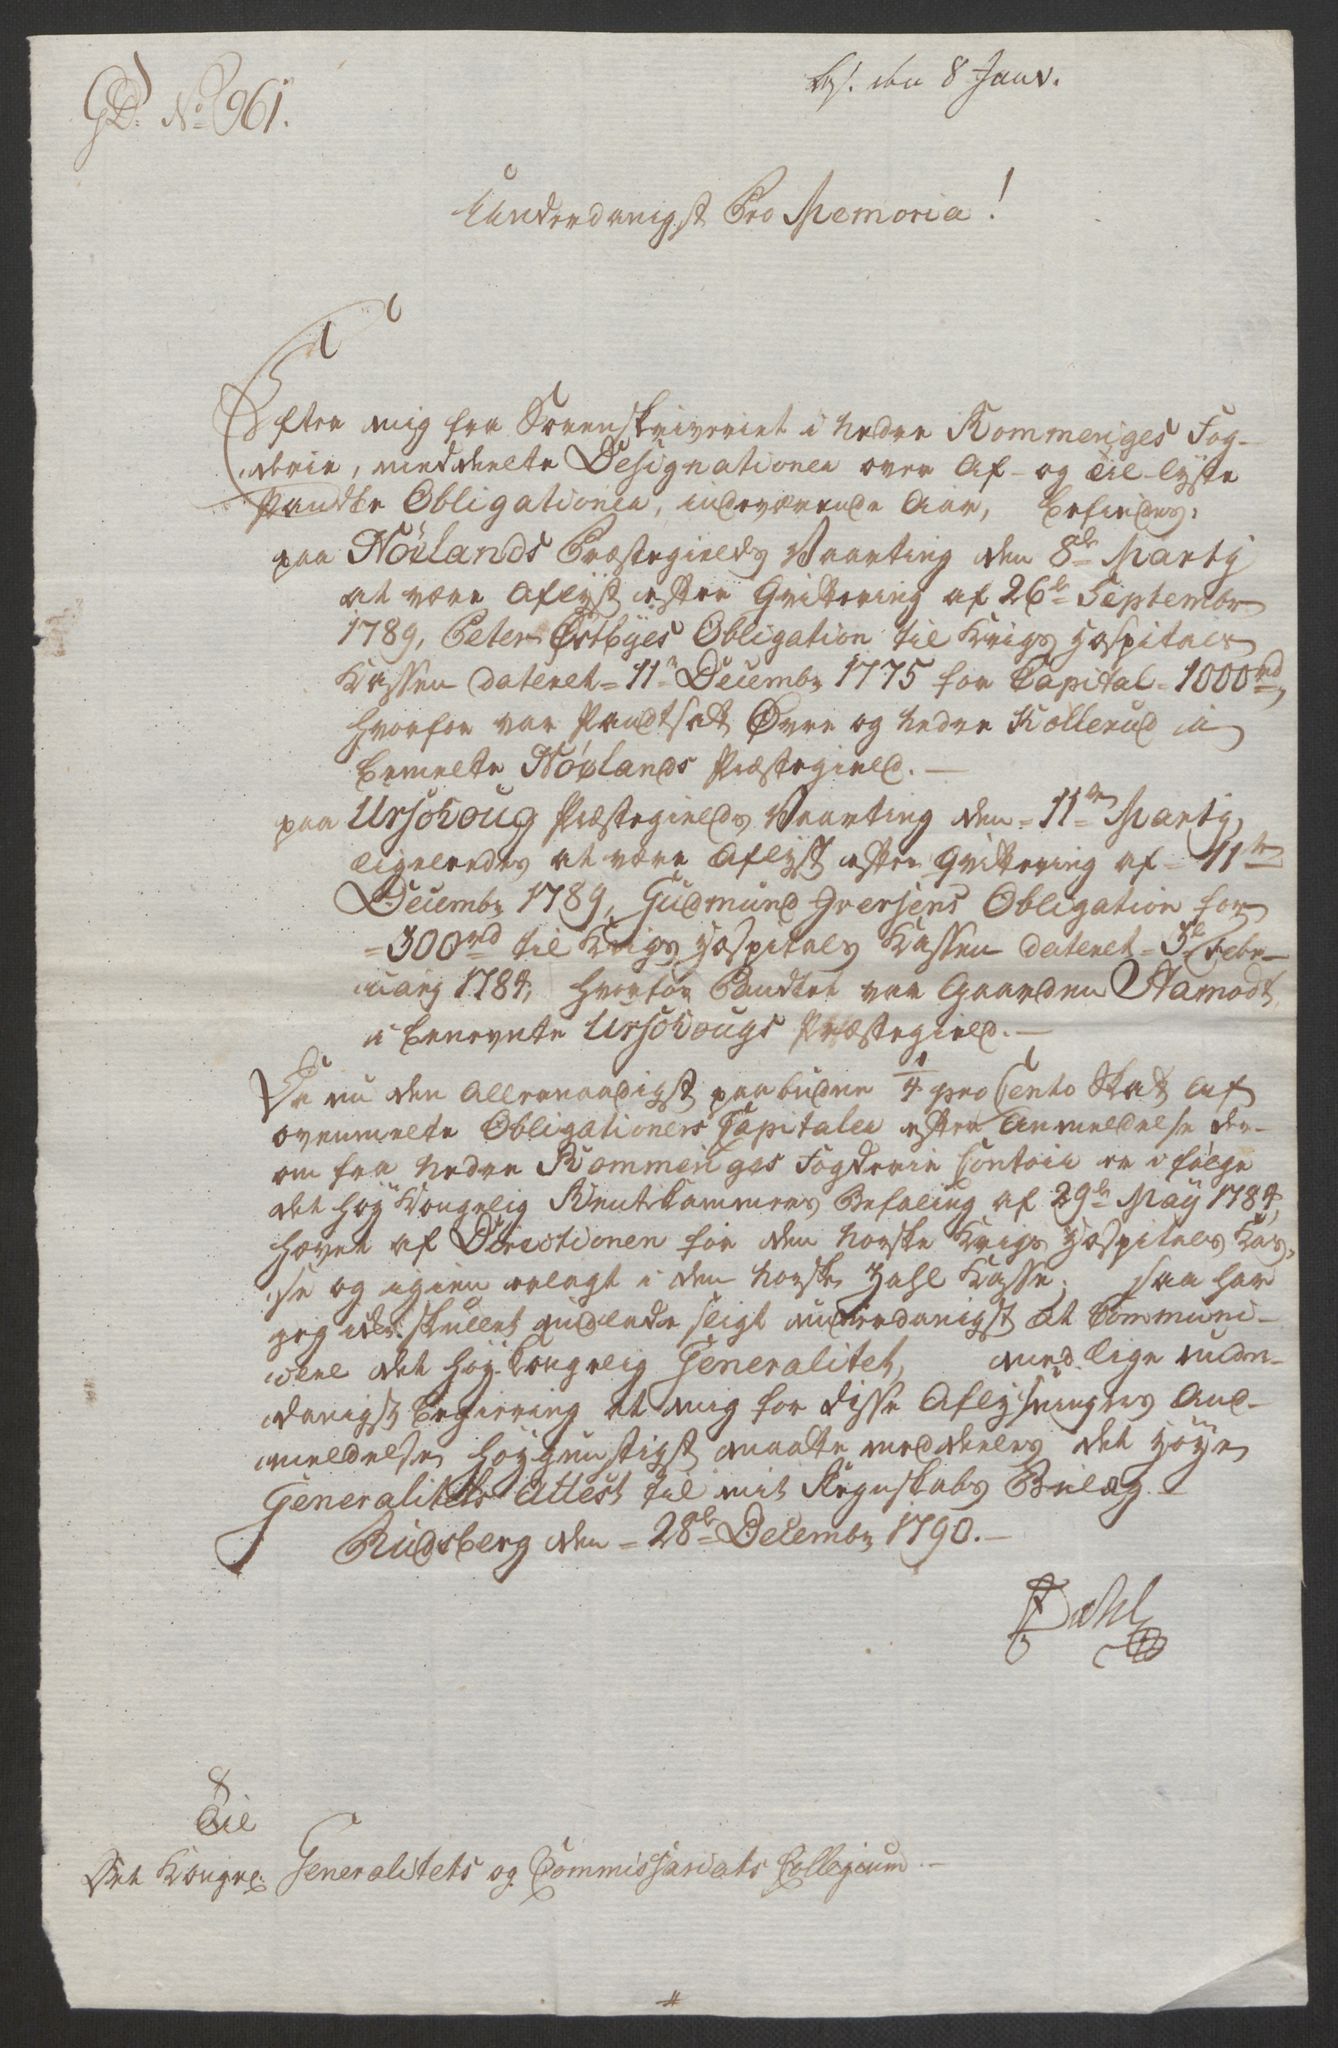 GD. No 961.
bs. den 8 Janv.
Underdanigst Pro Memoria!
Efter mig fra Sorenskriveriet i nedre Rommeriges Fog-
derie, meddeelte Designationer over Af- og Til-lyste
Pandte Obligationer, indeværende Aar, befindes:
paa Nöÿlands Præstegields Vaarting den 8de Martÿ
at være Aflyst efter Qvittering af 26de Septembr
1789, Peter Østbyes Obligation til Krigs Hospitals
Kassen dateret 11te Decembr 1775 for Capital 1000rd,
hvorfor var Pandtsat Øvre og nedre Kollerud i
bemelte Nöÿlands Præstegield. —
paa Urschoug Præstegields Vaarting den 11te Martÿ,
ligeledes at være Aflyst efter Qvittering af 11te
Decembr 1789, Gudmund Iversens Obligation for
300rd til Krigs Hospitals Kassen dateret 3de Febr-
uarÿ 1784, hvorfor Pandtet var Gaarden Aamodt
i benevnte Urschougs Præstegield. —
Da nu den Allernaadigst paabudne 1/4 pro Cento Skat af
ovenmelte Obligationers Capitaler efter Anmeldelse der-
om fra nedre Rommeriges Fogderie Contoir er i følge
det høy Kongelig Rentekammers Befaling af 29de Maÿ 1784,
hævet af Directionen for den norske Krigs Hospitals Kas-
se og igien erlagt i den norske Zahl Kasse; saa har
jeg ikke skullet undlade sligt underdanigst at Communi-
cere det høy-Kongelig Generalitet, med lige under-
danigst Begiering at mig for disse Aflysningers An-
meldelse høygunstigst maatte meddeeles det høye
Generalitets Attest til mit Regnskabs Bielag. —
Rudsberg den 28de Decembr 1790. —
Dahl
Til
Det Kongel. Generalitets og Commissariats Collegium —